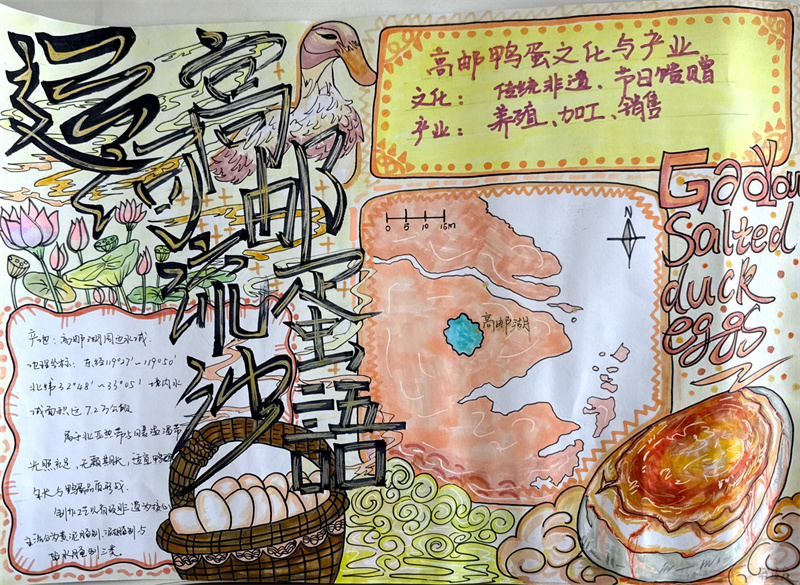 高邮蛋语
運河流沙
高邮鸭蛋文化与产业
文化：传统非遗、节日馈赠
产业：养殖、加工、销售
Gaoyou
Salted
duck
eggs
N
0 5 10 15m
高邮湖
产地：高邮湖周边水域.
地理坐标：东经119°27′—119°50′
北纬32°48′～33°05′境内水
域面积近7.2万公顷
属于北亚热带与暖温带
光照充足，无霜期长，适宜鸭
生长与鸭蛋品质形成.
制作工艺以省级非遗为核心
主流分为黄泥腌制、灰腌制与
盐水腌制三类